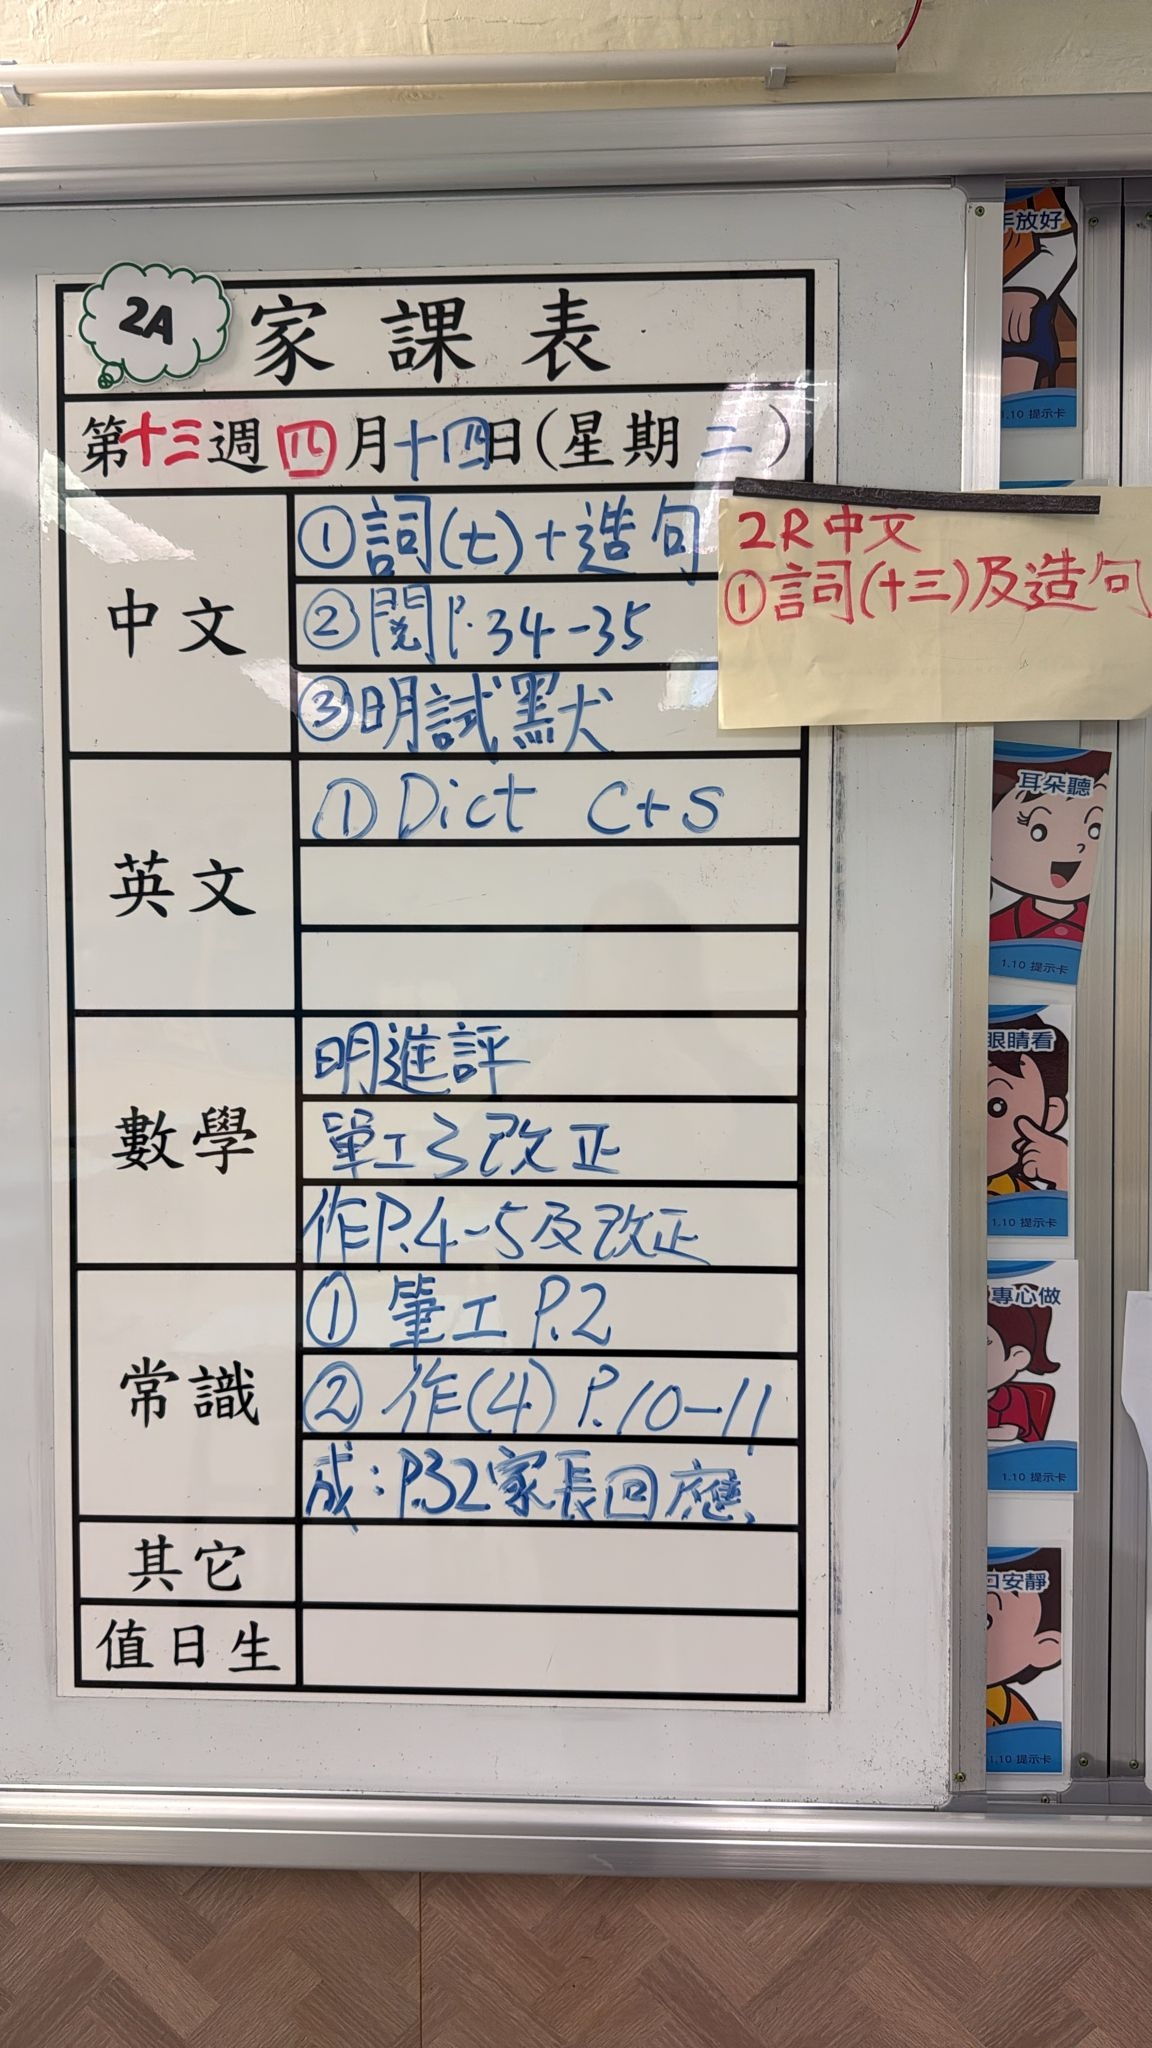 2A
家課表
第十三週四月十四日(星期二)
中文
①詞(七)+造句
②閱P.34-35
③明試默
2R中文
①詞(十三)及造句
英文
①Dict C+S
數學
明進評
單工3改正
作P.4-5及改正
常識
①筆工P.2
②作(4)P.10-11
成:P.32家長回應
其它
值日生
手放好
1.10 提示卡
耳朵聽
1.10 提示卡
眼睛看
1.10 提示卡
專心做
1.10 提示卡
口安靜
1.10 提示卡